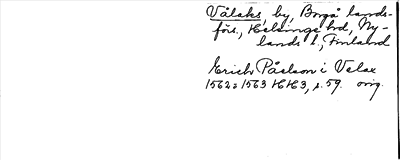 Vålaks, by, Borgå lands-
förs., Helsinge hd, Ny-
lands l., Finland
Erich Påelson i Velax
1562-1563 HH3, s. 59. orig.